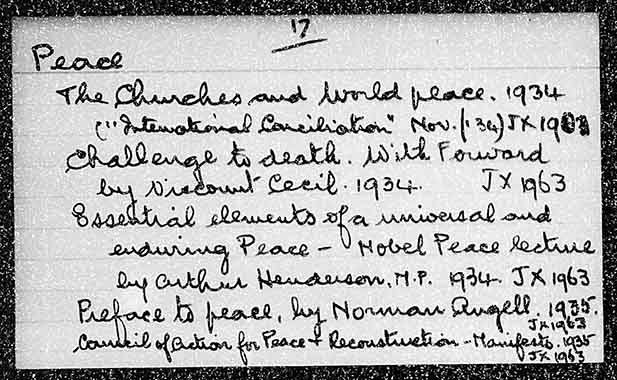 17
Peace
The Churches and World peace. 1934
("International Conciliation" Nov. ('34) JX 1907
Challenge to death. With Forward
by Viscount Cecil. 1934. JX 1963
Essential elements of a universal and
enduring Peace - Nobel Peace lecture
by Arthur Henderson, M.P. 1934. JX 1963
Preface to peace, by Norman Angell. 1935.
JX 1963
Council of Action for Peace + Reconstruction - Manifesto. 1935
JX 1963